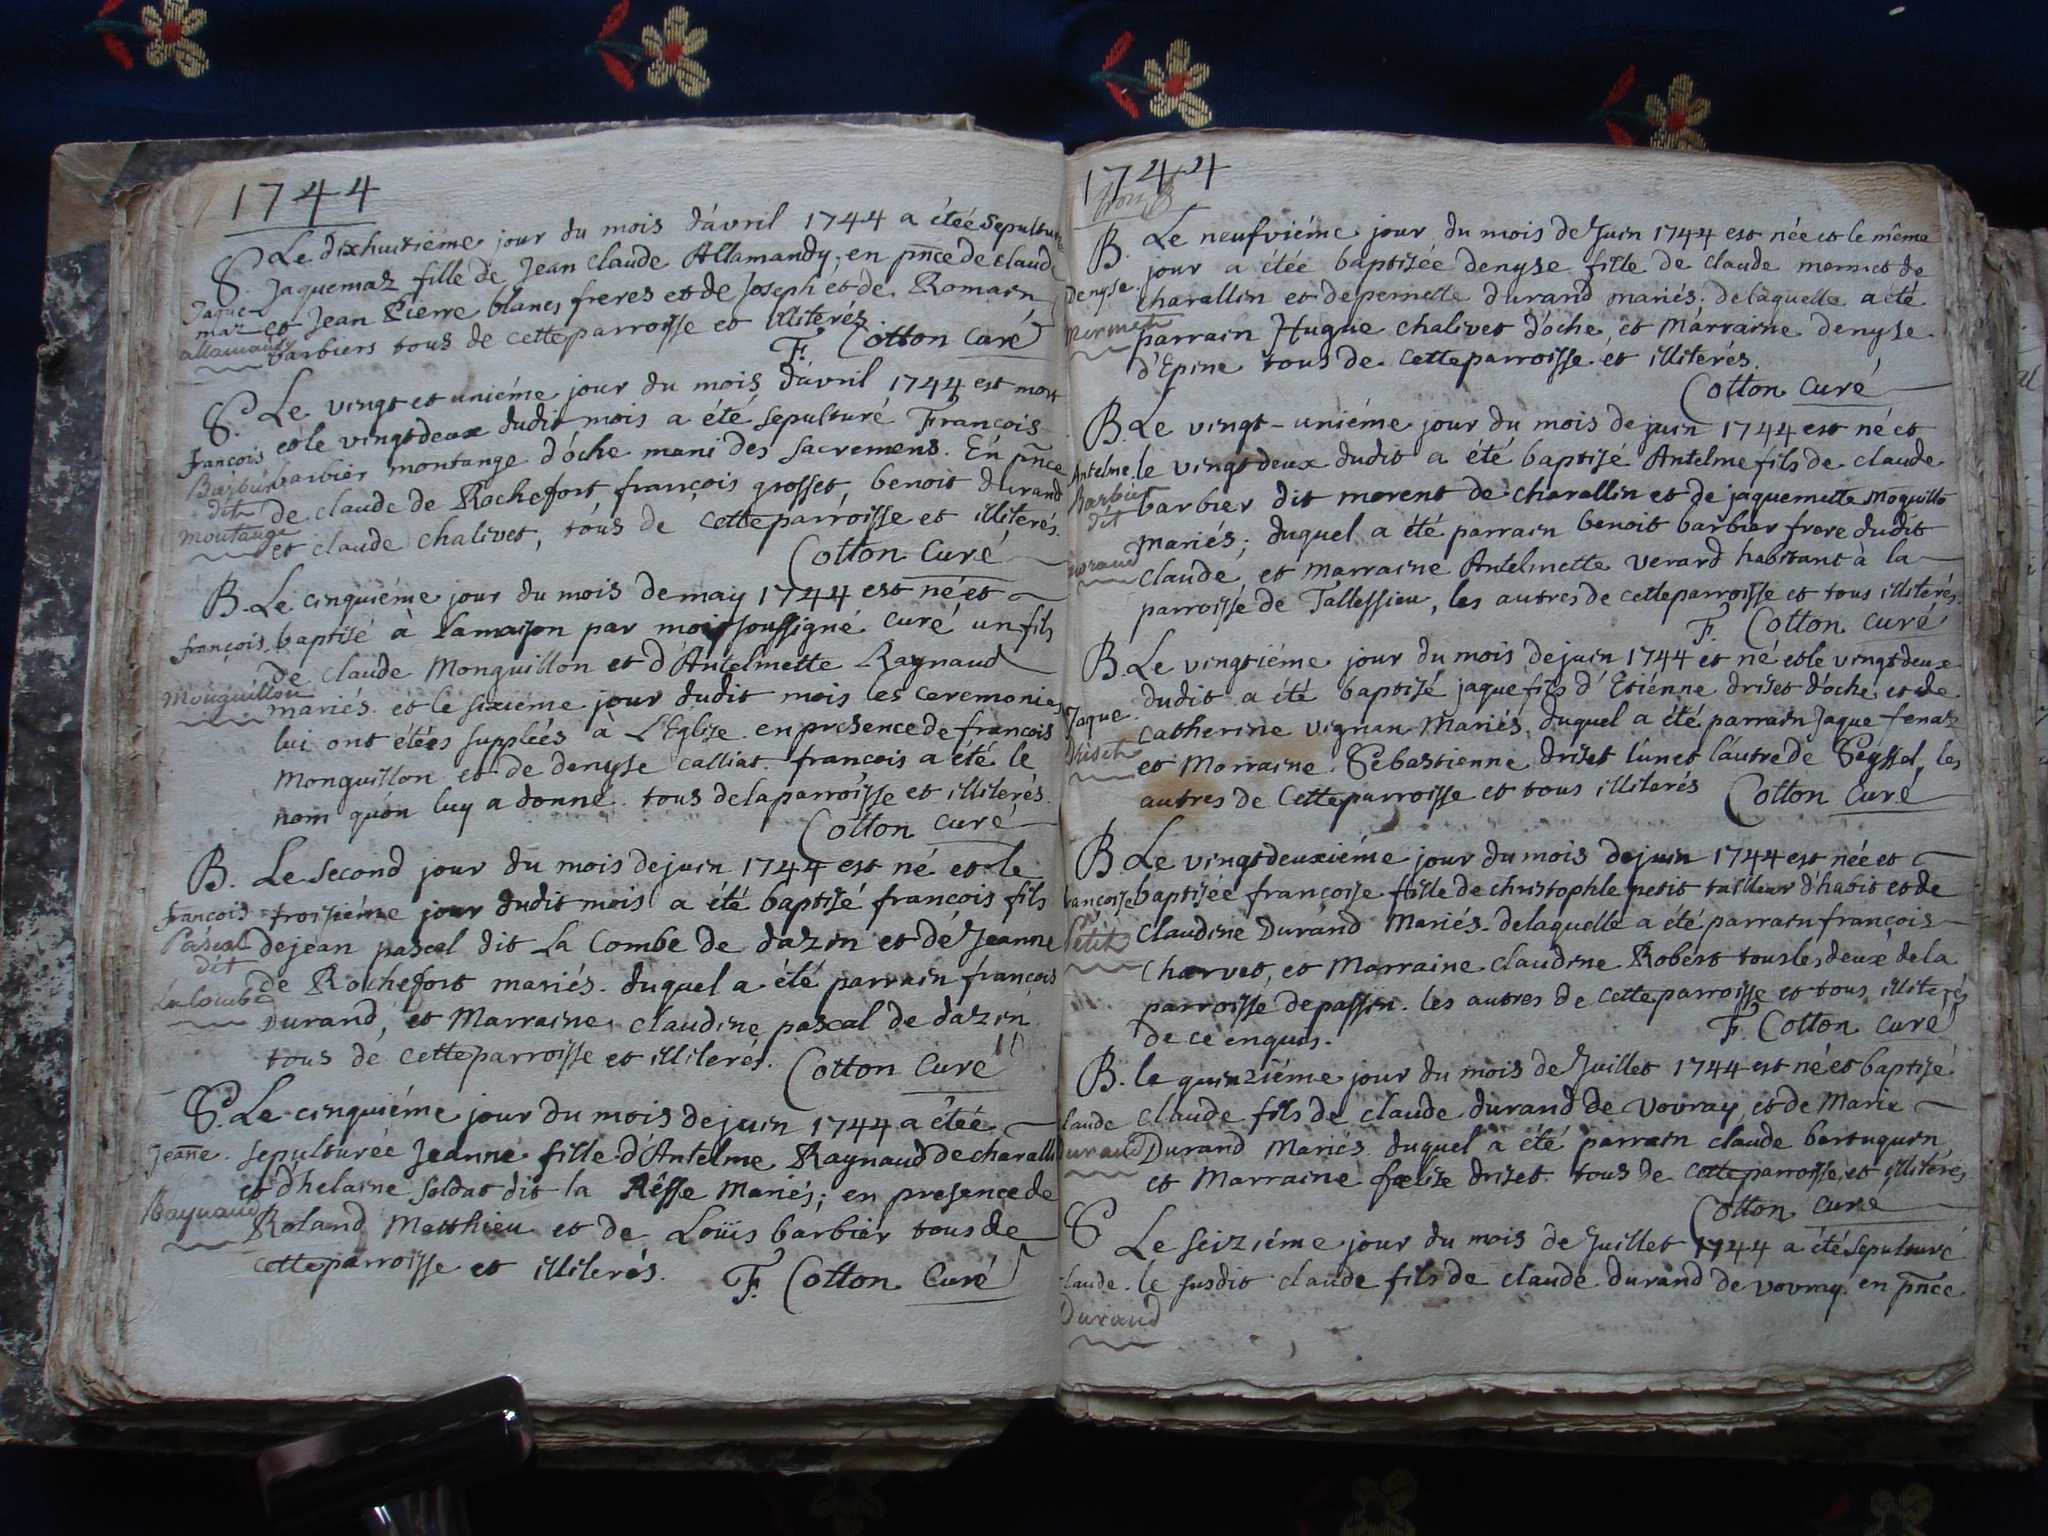 1744
S. Le dixhuitiéme jour du mois d'avril 1744 a étéé sepulturé
Jaquemaz fille de Jean Claude Allamandy en pn̄ce de claude
Jaque-
maz
allamandy
et Jean Pierre blanc freres et de Joseph et de Romain
barbiers tous de cette parroisse et illiterés.
F. Cotton Curé
S. Le vingt et uniéme jour du mois d'avril 1744 est mort
et le vingt deux dudit mois a été sepulturé François
François
Barbier
dit
Montange
barbier montange d'oche muni des sacremens. En pn̄ce
de claude de Rochefort françois grosset, benoit durand
et claude chalivet, tous de cette parroisse et illiterés.
Cotton Curé
B. Le cinquiéme jour du mois de may 1744 est né et
françois
Monguillon
baptisé à la maison par moi soussigné curé un fils
de claude Monguillon et d'Antelmette Raynaud
mariés et le sixiéme jour dudit mois les ceremonies
lui ont étées supplées à L'Eglise en presence de francois
Monguillon et de denyse calliat. francois a été le
nom qu'on luy a donné. tous de la parroisse et illiterés.
Cotton curé
B. Le second jour du mois de juin 1744 est né et le
françois
Pascal
dit
La Combe
troisiéme jour dudit mois a été baptisé françois fils
de jean pascal dit La Combe de dazin et de Jeanne
de Rochefort mariés. duquel a été parrain françois
Durand, et Marraine claudine pascal de dazin
tous de cette parroisse et illiterés.
Cotton Curé
S. Le cinquiéme jour du mois de juin 1744 a étéé
Jean̄e
Raynaud
sepulturée Jeanne fille d'Antelme Raynaud de charalli
et d'helaine soldat dit la Mariés; en presence de
Roland Matthieu et de Loüis barbier tous de
cette parroisse et illiterés.
F. Cotton Curé
1744
B. Le neufviéme jour du mois de Juin 1744 est née et le même
Denyse
Mermet
jour a étée baptisée denyse fille de claude mermet de
charallin et de pernette durand mariés. de laquelle a été
parrain Hugue chalivet d'oche, et Marraine denyse
d'Epine tous de cette parroisse et illiterés
Cotton curé
B. Le vingt-uniéme jour du mois de juin 1744 est né et
Antelme
Barbier
dit
le vingt deux dudit a été baptisé Antelme fils de claude
barbier dit morent de charallin et de jaquemette Moquillo
mariés; duquel a été parrain benoit barbier frere dudit
claude, et marraine Antelmette verard habitant à la
parroisse de Tallessieu, les autres de cette parroisse et tous illiterés.
F. Cotton curé
B. Le vingtiéme jour du mois de juin 1744 et né et le vingt deux
Jaque
Driset
dudit a été baptisé jaque fils d'Etiénne driset d'oche et de
catherine vignan Mariés, duquel a été parrain Jaque fenaz
et Marraine Sebastienne driset l'un et l'autre de Seyssel, les
autres de Cette parroisse et tous illiterés Cotton curé
B. Le vingt deuxiéme jour du mois de juin 1744 est née et
françoise
Petit
baptisée françoise fille de christophle petit tailleur d'habit et de
Claudine Durand Mariés. de laquelle a été parrain françois
Charvet, et Marraine claudine Robert tous les deux de la
parroisse de passin. les autres de cette parroisse et tous illiterés
de ce enquis.
F. Cotton curé
B. le quinziéme jour du mois de Juillet 1744 est né et baptisé
claude
Durand
Claude fils de claude durand de vovray, et de Marie
Durand Mariés. duquel a été parrain claude bertuguin
et Marraine fœlise driset. tous de cette parroisse, et illiterés
Cotton curé
S
Le seiziéme jour du mois de Juillet 1744 a été sepulturé
claude
Durand
le susdit claude fils de claude durand de vovray en pn̄ce